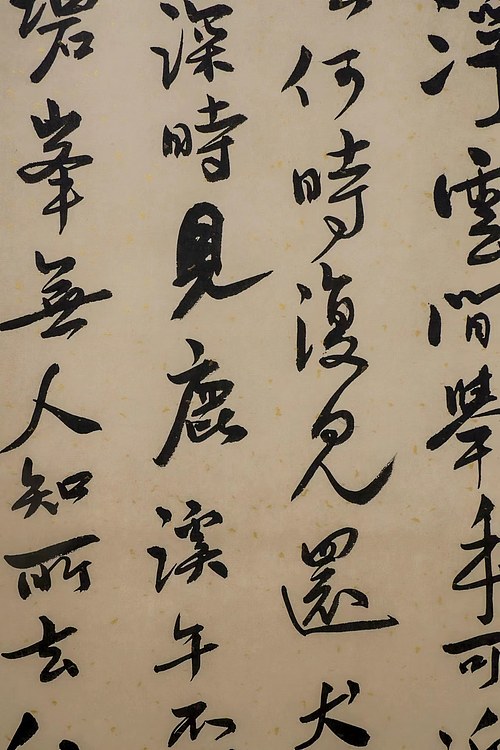 浮雲間舉手可
何時復見還犬
深時見鹿溪午不
碧峯無人知所去